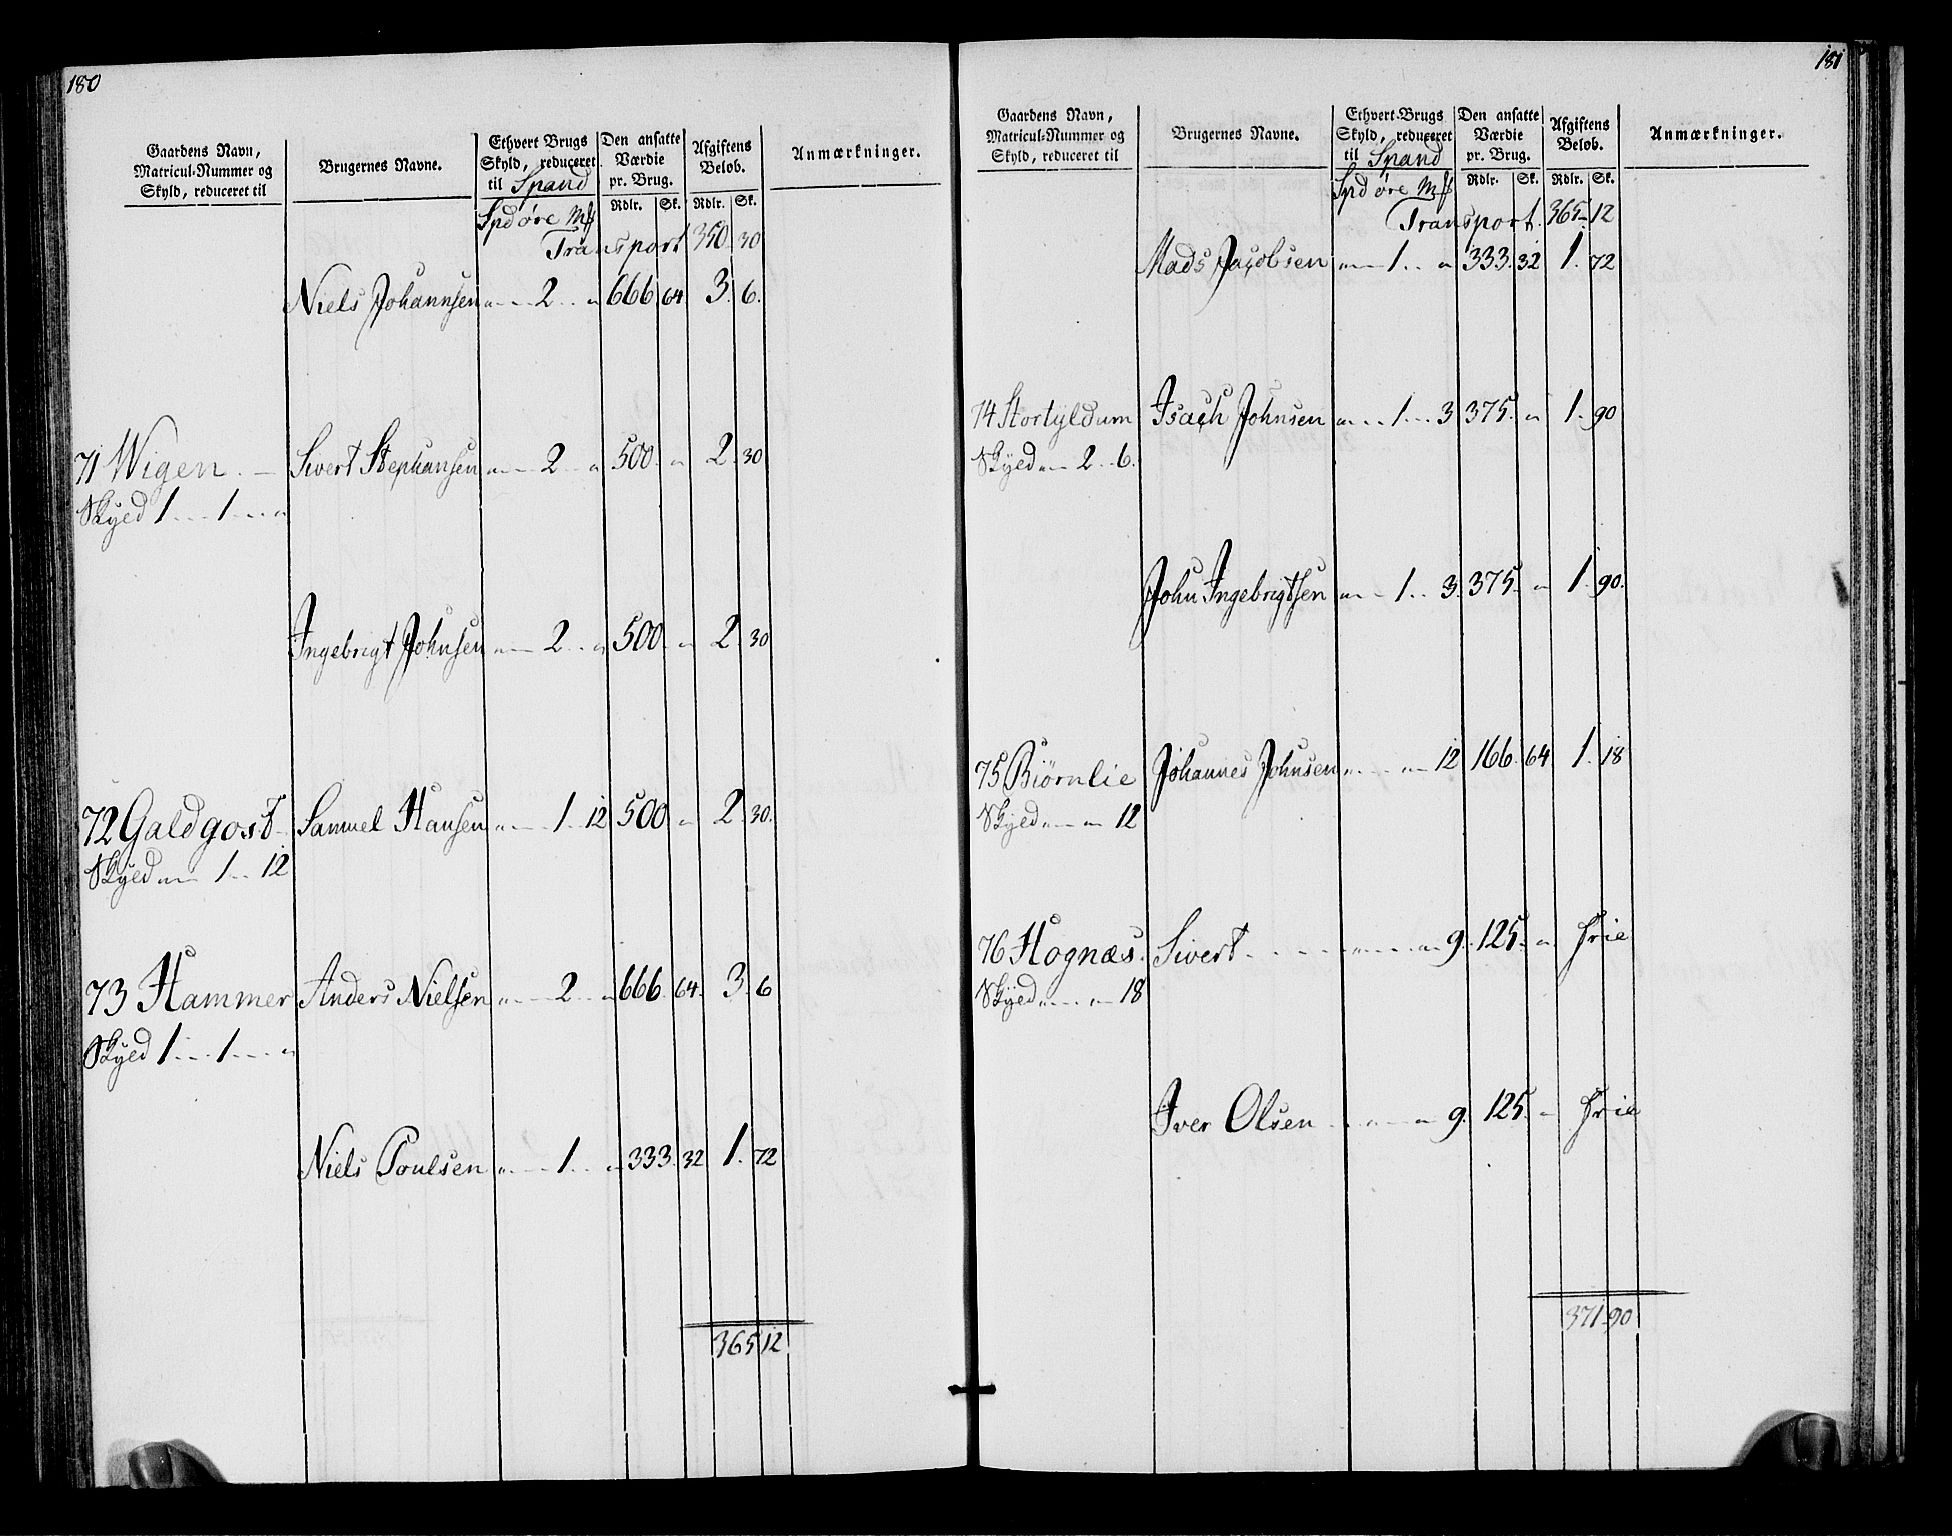 180
Gaardens Navn, Matricul-Nummer og Skyld, reduceret til
Brugernes Navne.
Ethvert Brugs Skyld, reduceret til Spand
Den ansatte Værdie pr. Brug.
Afgiftens Beløb.
Anmærkninger.
Spd øre Mk Rdlr. Sk. Rdlr. Sk.
Transport 350 30
Niels Johannsen 2 666 64 3. 6.
71 Wigen. Sivert Stephansen 2 500 2. 30
Skyld 1 1
Ingebrigt Johnsen 2 500 2 30
72 Galdgost Samuel Hansen 1 12 500 2 30.
Skyld 1 12
73 Hammer Anders Nielsen 2 666. 64. 3. 6
Skyld 1 1
Niels Poulsen 1 333. 32 1. 72
365 12
181
Gaardens Navn, Matricul-Nummer og Skyld, reduceret til
Brugernes Navne.
Ethvert Brugs Skyld, reduceret til Spand
Den ansatte Værdie pr. Brug.
Afgiftens Beløb.
Anmærkninger.
Spd øre Mk Rdlr. Sk. Rdlr. Sk.
Transport. 365. 12
Mads Jacobsen 1 333. 32 1. 72
74 Stortyldum Isach Johnsen 1 3 375. 1. 90
Skyld 2 6.
John Ingebrigtsen 1 3. 375. 1. 90.
75 Biørnlie Johannes Johnsen 12 166. 64 1. 18
Skyld 12
76 Hognæs. Sivert 9. 125. frie
Skyld 18
Iver Olsen 9. 125. frie
371 90